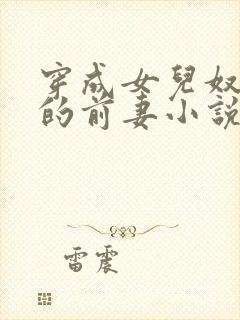 穿成女兒奴
的前妻小說
雷震